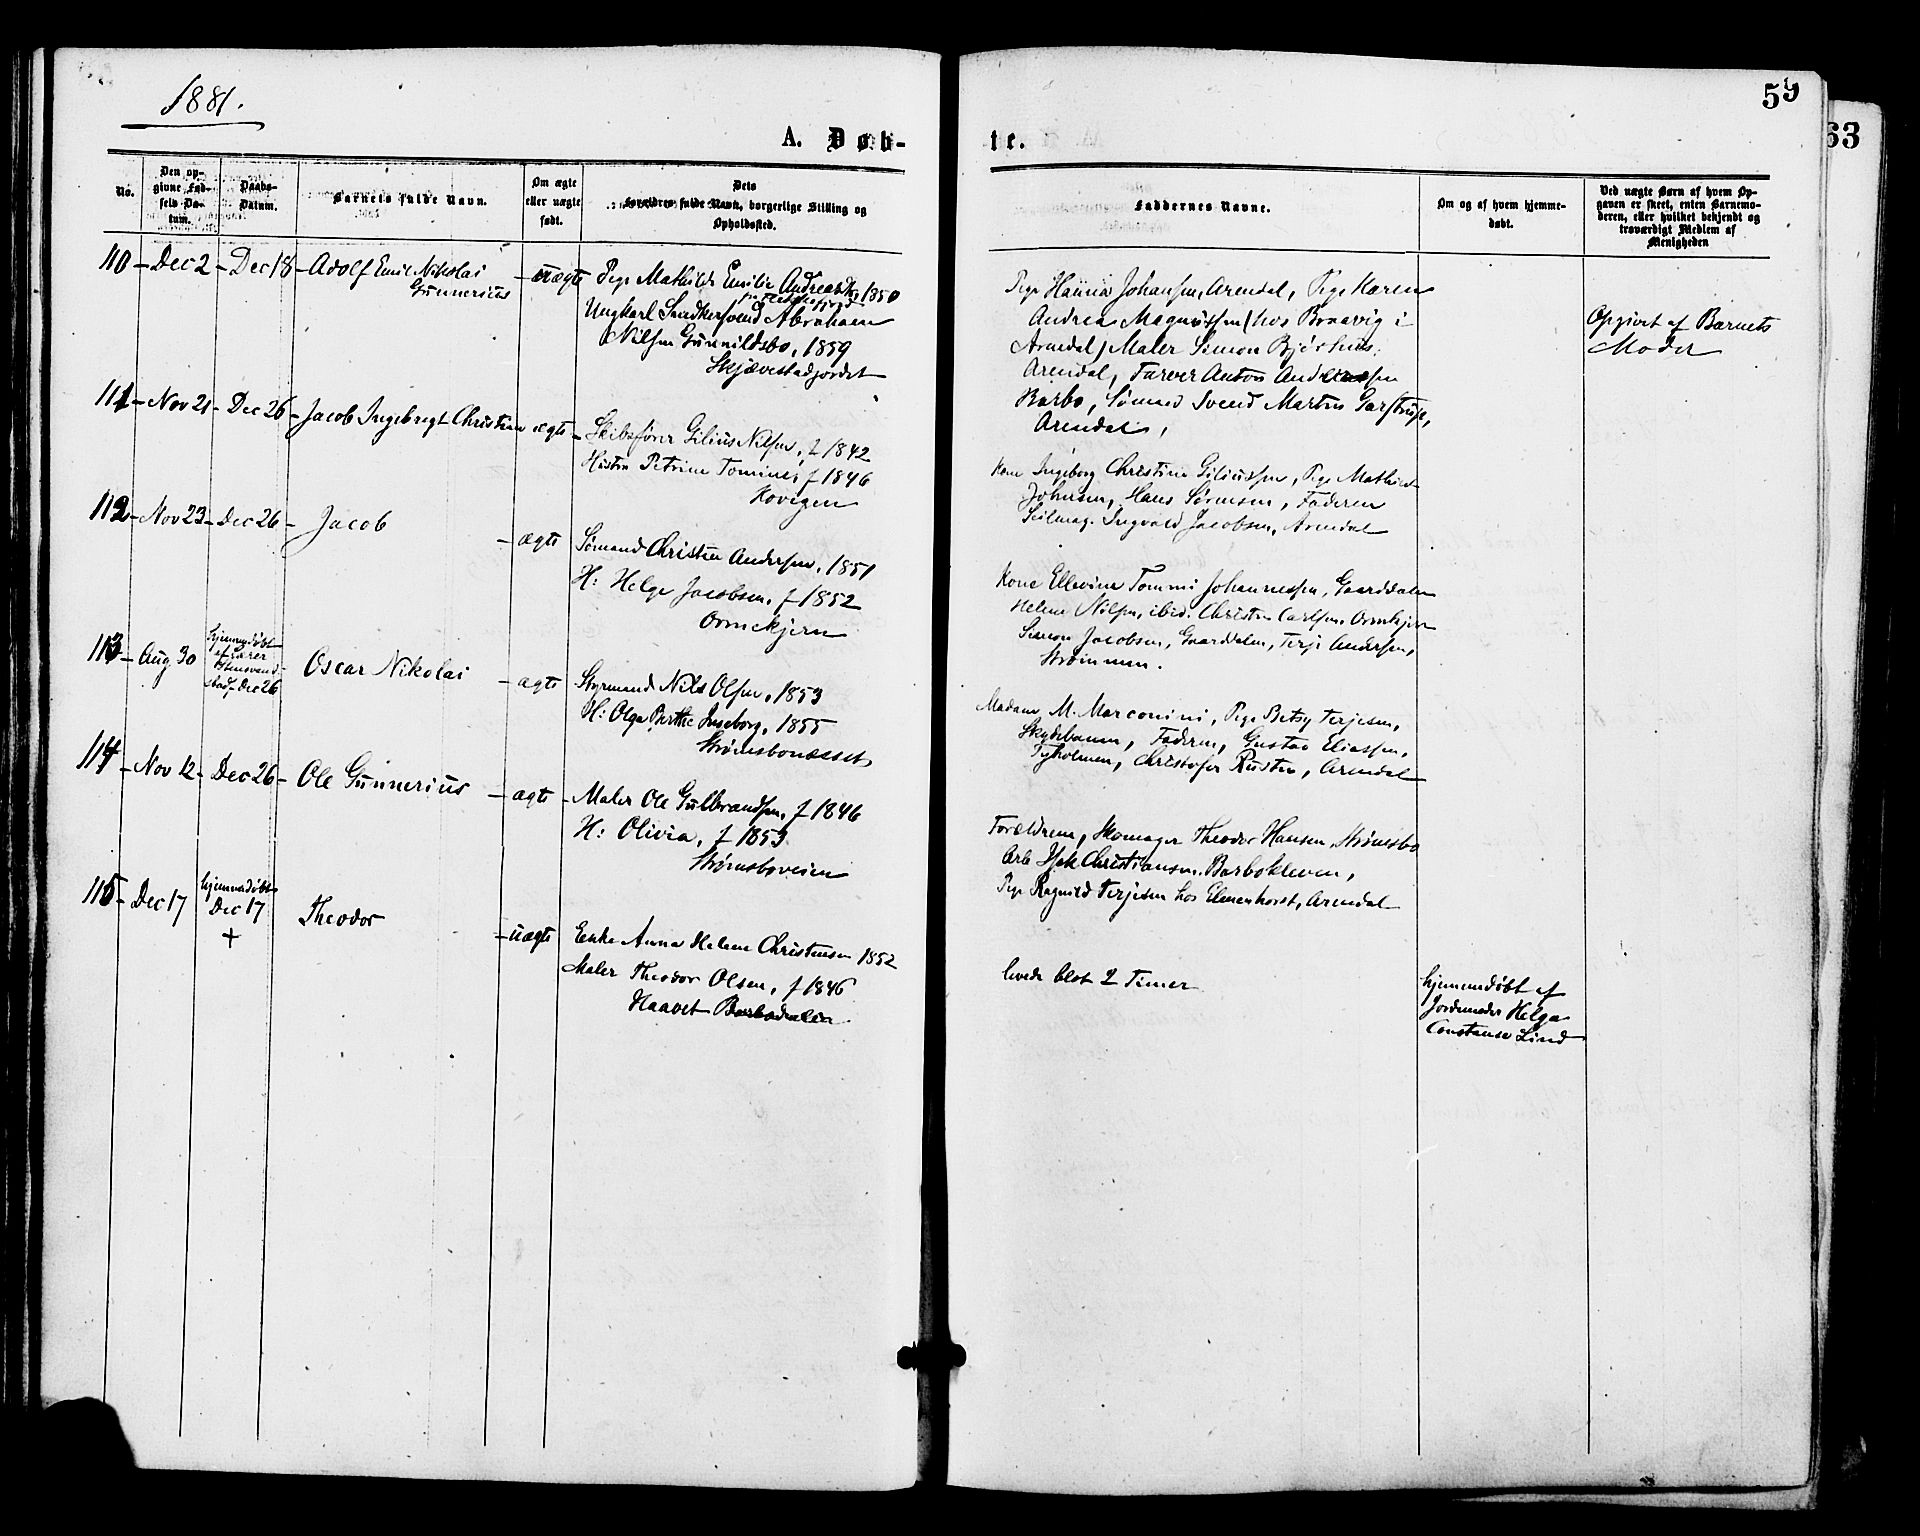 1881.
59
63
A. Døb-
te.
No.
Den op-
givne Fød-
sels Da-
tum.
Daabs-
Datum.
Barnets fulde Navn.
Om ægte
eller uægte
født.
Dets
Forældres fulde Navn, borgerlige Stilling og
Opholdssted.
Faddernes Navne.
Om og af hvem hjemme-
døbt.
Ved uægte Børn af hvem Op-
gaven er skeet, enten Barnemo-
deren, eller hvilket bekjendt og
troværdigt Medlem af
Menigheden
110 - Dec 2 - Dec 18 - Adolf Emil Nikolai
Gunnerius
- uægte
Pige Mathilde Emilie Andreasen, 1850
Ungkarl Snedkersvend Abraham
Nilsen Gunnildsbo, 1859
Skjævestadjordet
Pige Hanna Johansen, Arendal, Pige Karen
Andrea Magnussen (hos Braavig i
Arendal) Maler Simon
Arendal, Farver Anton Andreassen
Barbo, Sømand Svend Martin
Arendal,
Opgivet af Barnets
Moder
111 - Nov 21 - Dec 26 - Jacob Ingebregt Christian
ægte -
Skibsfører Gilius Nilsen, f 1842
Hustru Petrine Tomine, f 1846
Kovigen
Kone Ingeborg Christine Giliussen, Pige Mathilde
Johnsen, Hans Sørensen, Faderen
Seilmag. Ingvald Jacobsen, Arendal
112 - Nov 23 - Dec 26 - Jacob
- ægte
Sømand Christen Andersen, 1851
H: Helge Jacobsen, f 1852
Ormekjern
Kone Ellevine Tommi Johannessen, Gaarddalen
Helene Nilsen, ibid. Christen Carlsen, Ormekjern
Simon Jacobsen, Gaarddalen, Terje Andersen,
Strømmen.
113 - Aug 30
hjemmedøbt
af Lærer
Dec 26
Oscar Nikolai
- ægte
Styrmand Nils Olsen, 1853
H: Olga Berthe Ingeborg, 1855
Strømsbonæsset
Madam M. Marconini, Pige Betsy Terjesen,
Skydebanen, Faderen, Gustav Eliassen,
Tyholmen, Christofer Rustin, Arendal
114 - Nov 12 - Dec 26 - Ole Gunnerius
- ægte -
Maler Ole Gulbrandsen, f 1846
H: Olivia, f 1853
Strømsboveien
Forældrene, Skomager Theodor Hansen, Strømsbo
Arb Isak Christiansen, Barbokleven,
Pige Ragnild Terjesen hos Elmenhorst, Arendal
115 - Dec 17
hjemmedøbt
Dec 17
+
Theodor
- uægte
Enke Anna Helene Christensen 1852
Maler Theodor Olsen, f 1846
Haavet Barbodalen
levede blot 2 Timer
hjemmedøbt af
Jordemoder Helga
Constanse Lind